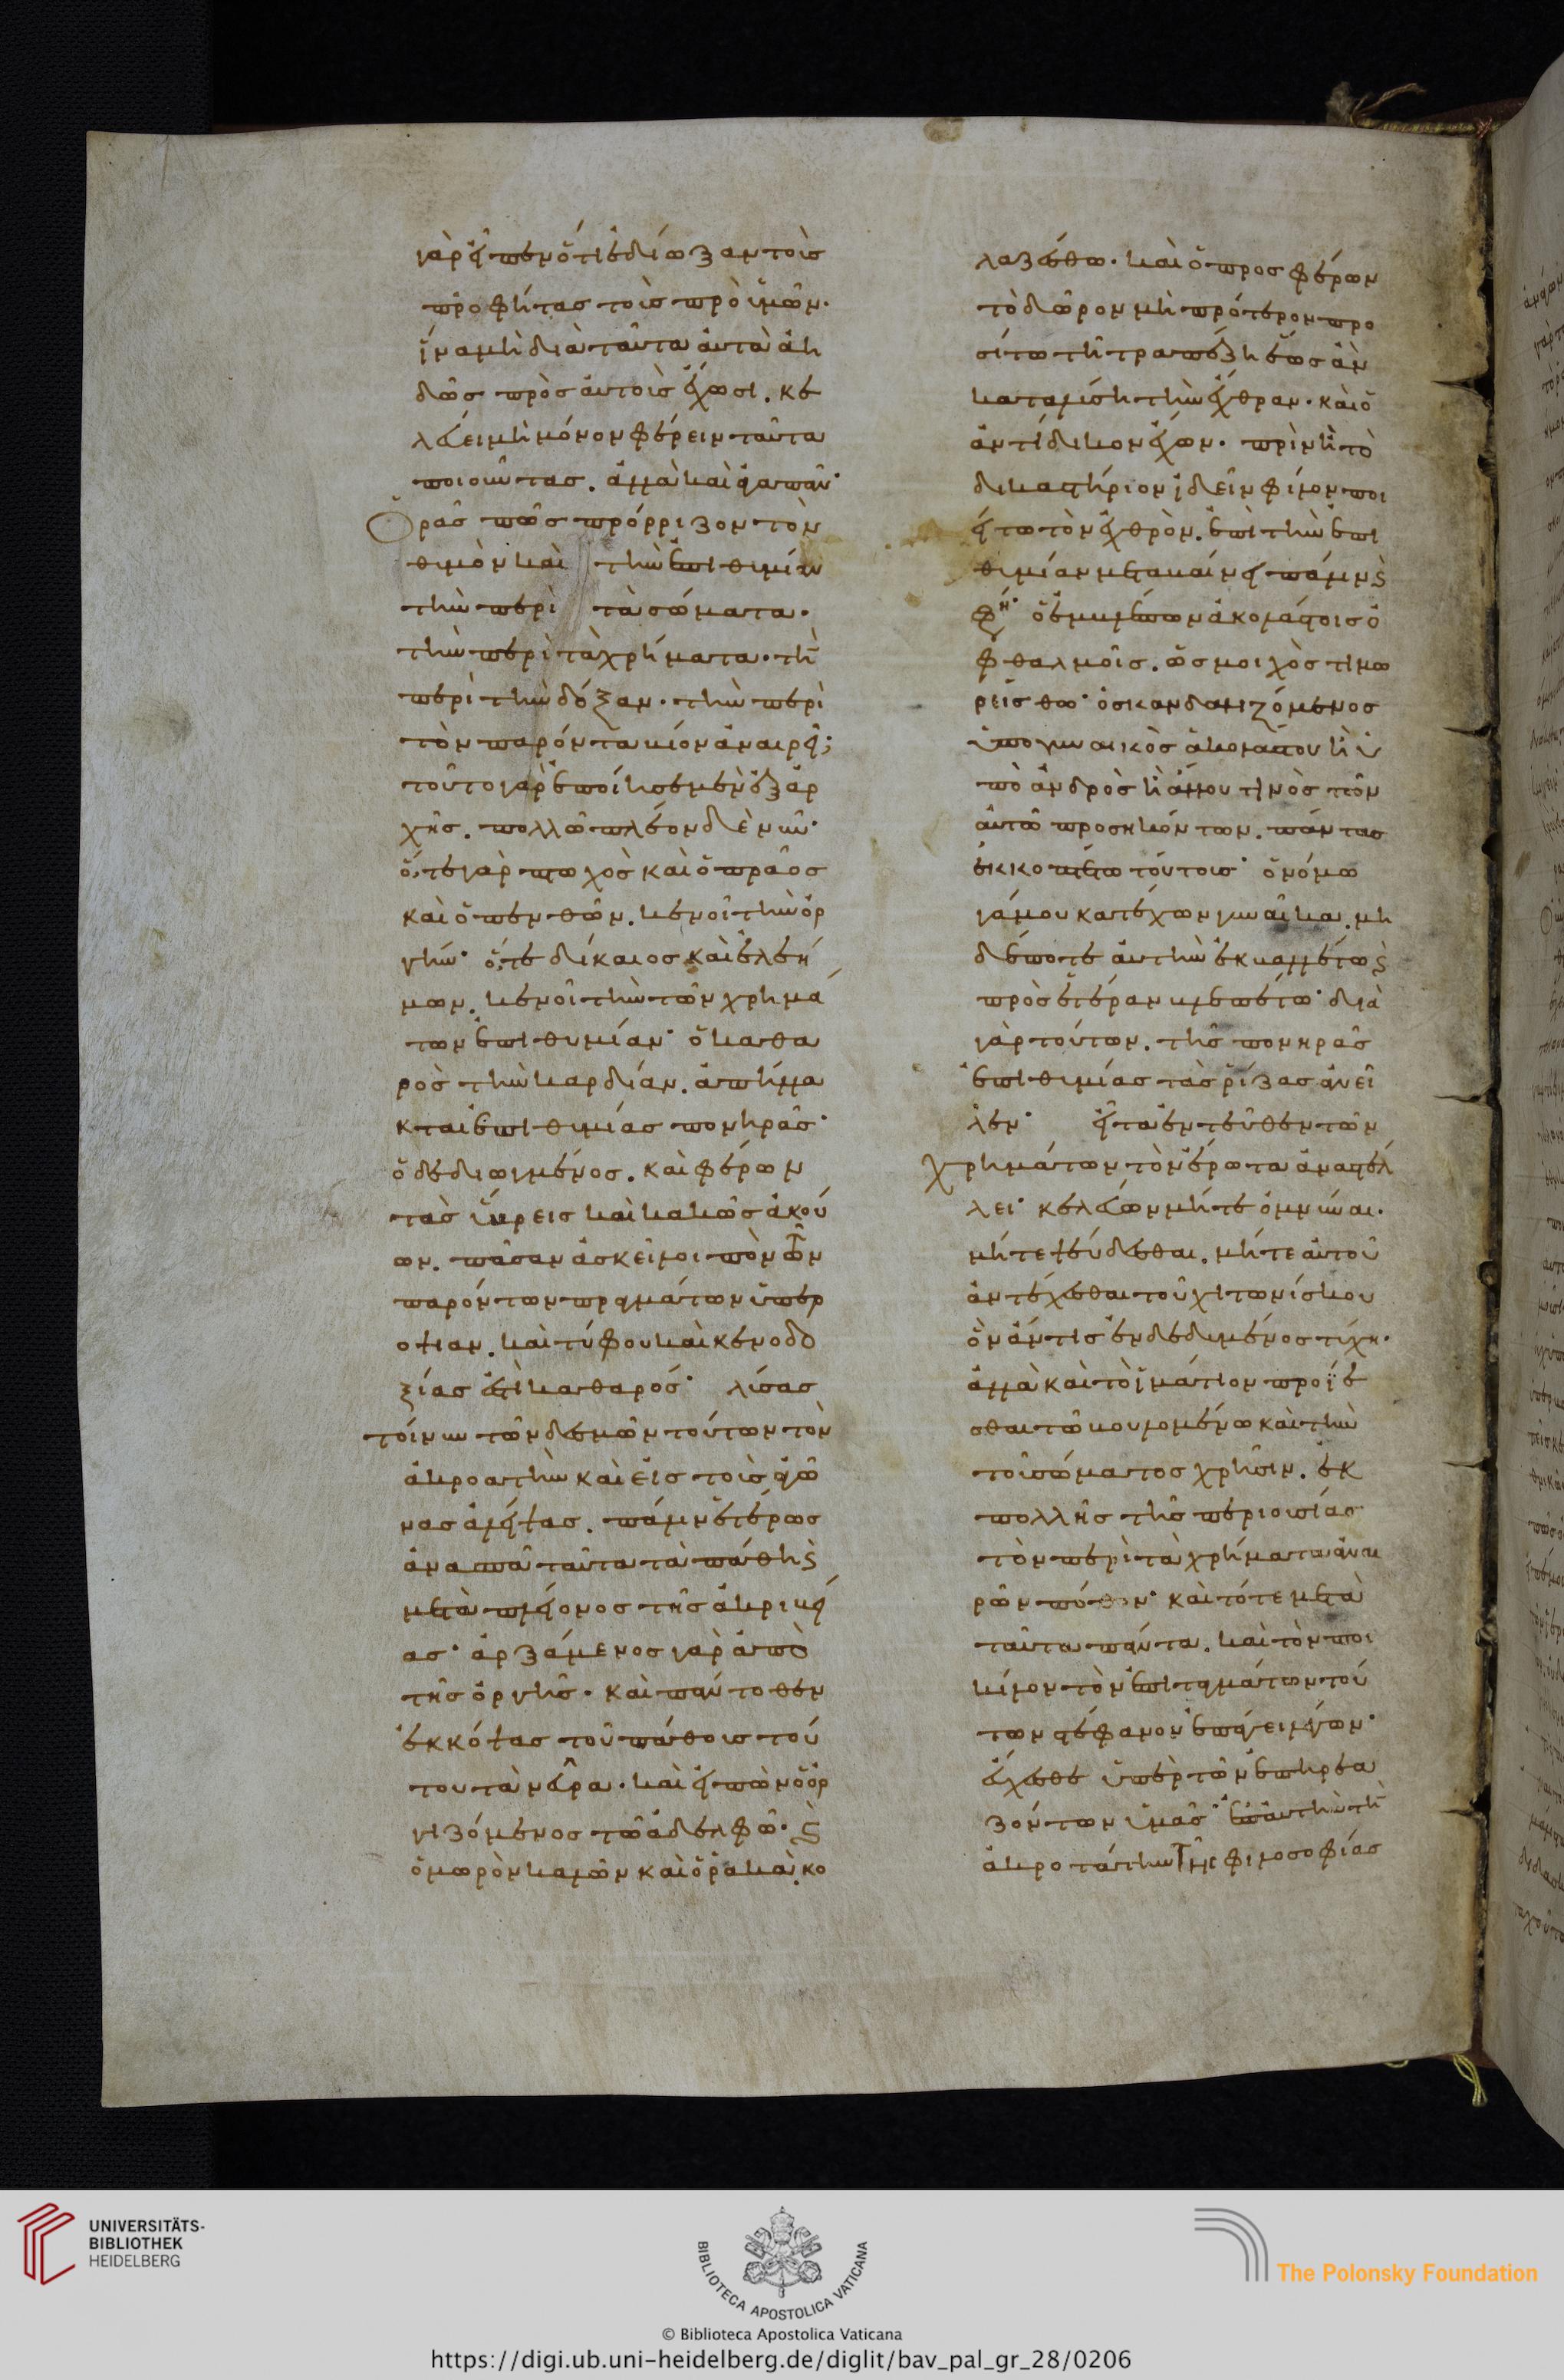 γὰρ εἶπεν ὅτι ἐδίωξαν τοὺς
προφήτας τοὺς πρὸ ὑμῶν·
ἵνα μὴ διὰ ταῦτα αὐτὰ ἀη
δῶς πρὸς αὐτοὺς ἔχωσι. κε
λεύει μὴ μόνον φέρειν ταῦτα
ποιοῦντας. ἀλλὰ καὶ ἀγαπᾶν·
Ὁρᾶς πῶς πρόρριζον τὸν
θυμὸν καὶ τὴν ἐπιθυμίαν
τὴν περὶ τὰ σώματα·
τὴν περὶ τὰ χρήματα· τὴν
περὶ τὴν δόξαν· τὴν περὶ
τὸν παρόντα βίον ἀναιρεῖ;
τοῦτο γὰρ ἐποίησε μὲν ἐξ ἀρ
χῆς. πολλῷ πλέον δὲ νῦν·
ὅ,τε γὰρ πτωχὸς καὶ ὁ πρᾶος
καὶ ὁ πενθῶν. κενοῖ τὴν ὀρ
γήν· ὅ,τε δίκαιος καὶ ἐλεή
μων. κενοῖ τὴν τῶν χρημά
των ἐπιθυμίαν· ὁ καθα
ρὸς τὴν καρδίαν. ἀπήλλα
κται ἐπιθυμίας πονηρᾶς·
ὁ δεδιωγμένος. καὶ φέρων
τὰς ὕβρεις καὶ κακῶς ἀκού
ων. πᾶσαν ἀσκεῖ λοιπὸν τῶν
παρόντων πραγμάτων ὑπερ
οψίαν. καὶ τύφου καὶ κενοδο
ξίας ἐστὶ καθαρός· λύσας
τοίνυν τῶν δεσμῶν τούτων τὸν
ἀκροατὴν καὶ εἰς τοὺς ἀγῶ
νας ἀλείψας. πάλιν ἑτέρως
ἀνασπᾷ ταῦτα τὰ πάθη ϗ
μετὰ πλείονος τῆς ἀκριβεί
ας· ἀρξάμενος γὰρ ἀπὸ
τῆς ὀργῆς· καὶ πάντοθεν
ἐκκόψας τοῦ πάθους τού
του τὰ νεῦρα· καὶ εἰπὼν ὁ ὀρ
γιζόμενος τῷ ἀδελφῷ· ϗ
ὁ μωρὸν καλῶν καὶ ὁ ῥακὰ, κο
λαζέσθω. καὶ ὁ προσφέρων
τὸ δῶρον μὴ πρότερον προ
σίτω τῇ τραπέζῃ ἕως ἂν
καταλύσῃ τὴν ἔχθραν· καὶ ὁ
ἀντίδικον ἔχων. πρὶν ἢ τὸ
δικαστήριον ἰδεῖν φίλον ποι
είτω τὸν ἐχθρὸν. ἐπὶ τὴν ἐπι
θυμίαν μεταβαίνει πάλιν ϗ
φη· ὁ ἐμβλέπων ἀκολάστοις ὀ
φθαλμοῖς. ὡς μοιχὸς τιμω
ρείσθω· ὁ σκανδαλιζόμενος
ὑπὸ γυναικὸς ἀκολάστου ἢ ὑ
πὸ ἀνδρὸς ἢ ἄλλου τινὸς τῶν
αὐτῷ προσηκόντων. πάντας
ἐκκοπτέτω τούτους· ὁ νόμῳ
γάμου κατέχων γυναῖκα. μη
δέποτε αὐτὴν ἐκβαλλέτω ϗ
πρὸς ἑτέραν βλεπέτω· διὰ
γὰρ τούτων. τῆς πονηρᾶς
ἐπιθυμίας τὰς ῥίζας ἀνεῖ
λεν· εἶτα ἐντεῦθεν τῶν
χρημάτων τὸν ἔρωτα ἀναστέλ
λει· κελεύων μήτε ὀμνύναι.
μήτε ψεύδεσθαι. μήτε αὐτοῦ
ἀντέχεσθαι τοῦ χιτωνίσκου
ὃν ἄν τις ἐνδεδυμένος τύχῃ·
ἀλλὰ καὶ τὸ ἱμάτιον προΐε
σθαι τῷ βουλομένῳ καὶ τὴν
τοῦ σώματος χρῆσιν. ἐκ
πολλῆς τῆς περιουσίας
τὸν περὶ τὰ χρήματα ἀναι
ρῶν πόθον· καὶ τότε μετὰ
ταῦτα πάντα. καὶ τὸν ποι
κίλον τῶν ἐπιταγμάτων τού
των στέφανον ἐπάγει λέγων·
εὔχεσθε ὑπὲρ τῶν ἐπηρεα
ζόντων ὑμᾶς· ἐπ αὐτὴν τὴν
ἀκροτάτην τῆς φιλοσοφίας
UNIVERSITÄTS-
BIBLIOTHEK
HEIDELBERG
BIBLIOTECA APOSTOLICA VATICANA
The Polonsky Foundation
© Biblioteca Apostolica Vaticana
https://digi.ub.uni-heidelberg.de/diglit/bav_pal_gr_28/0206